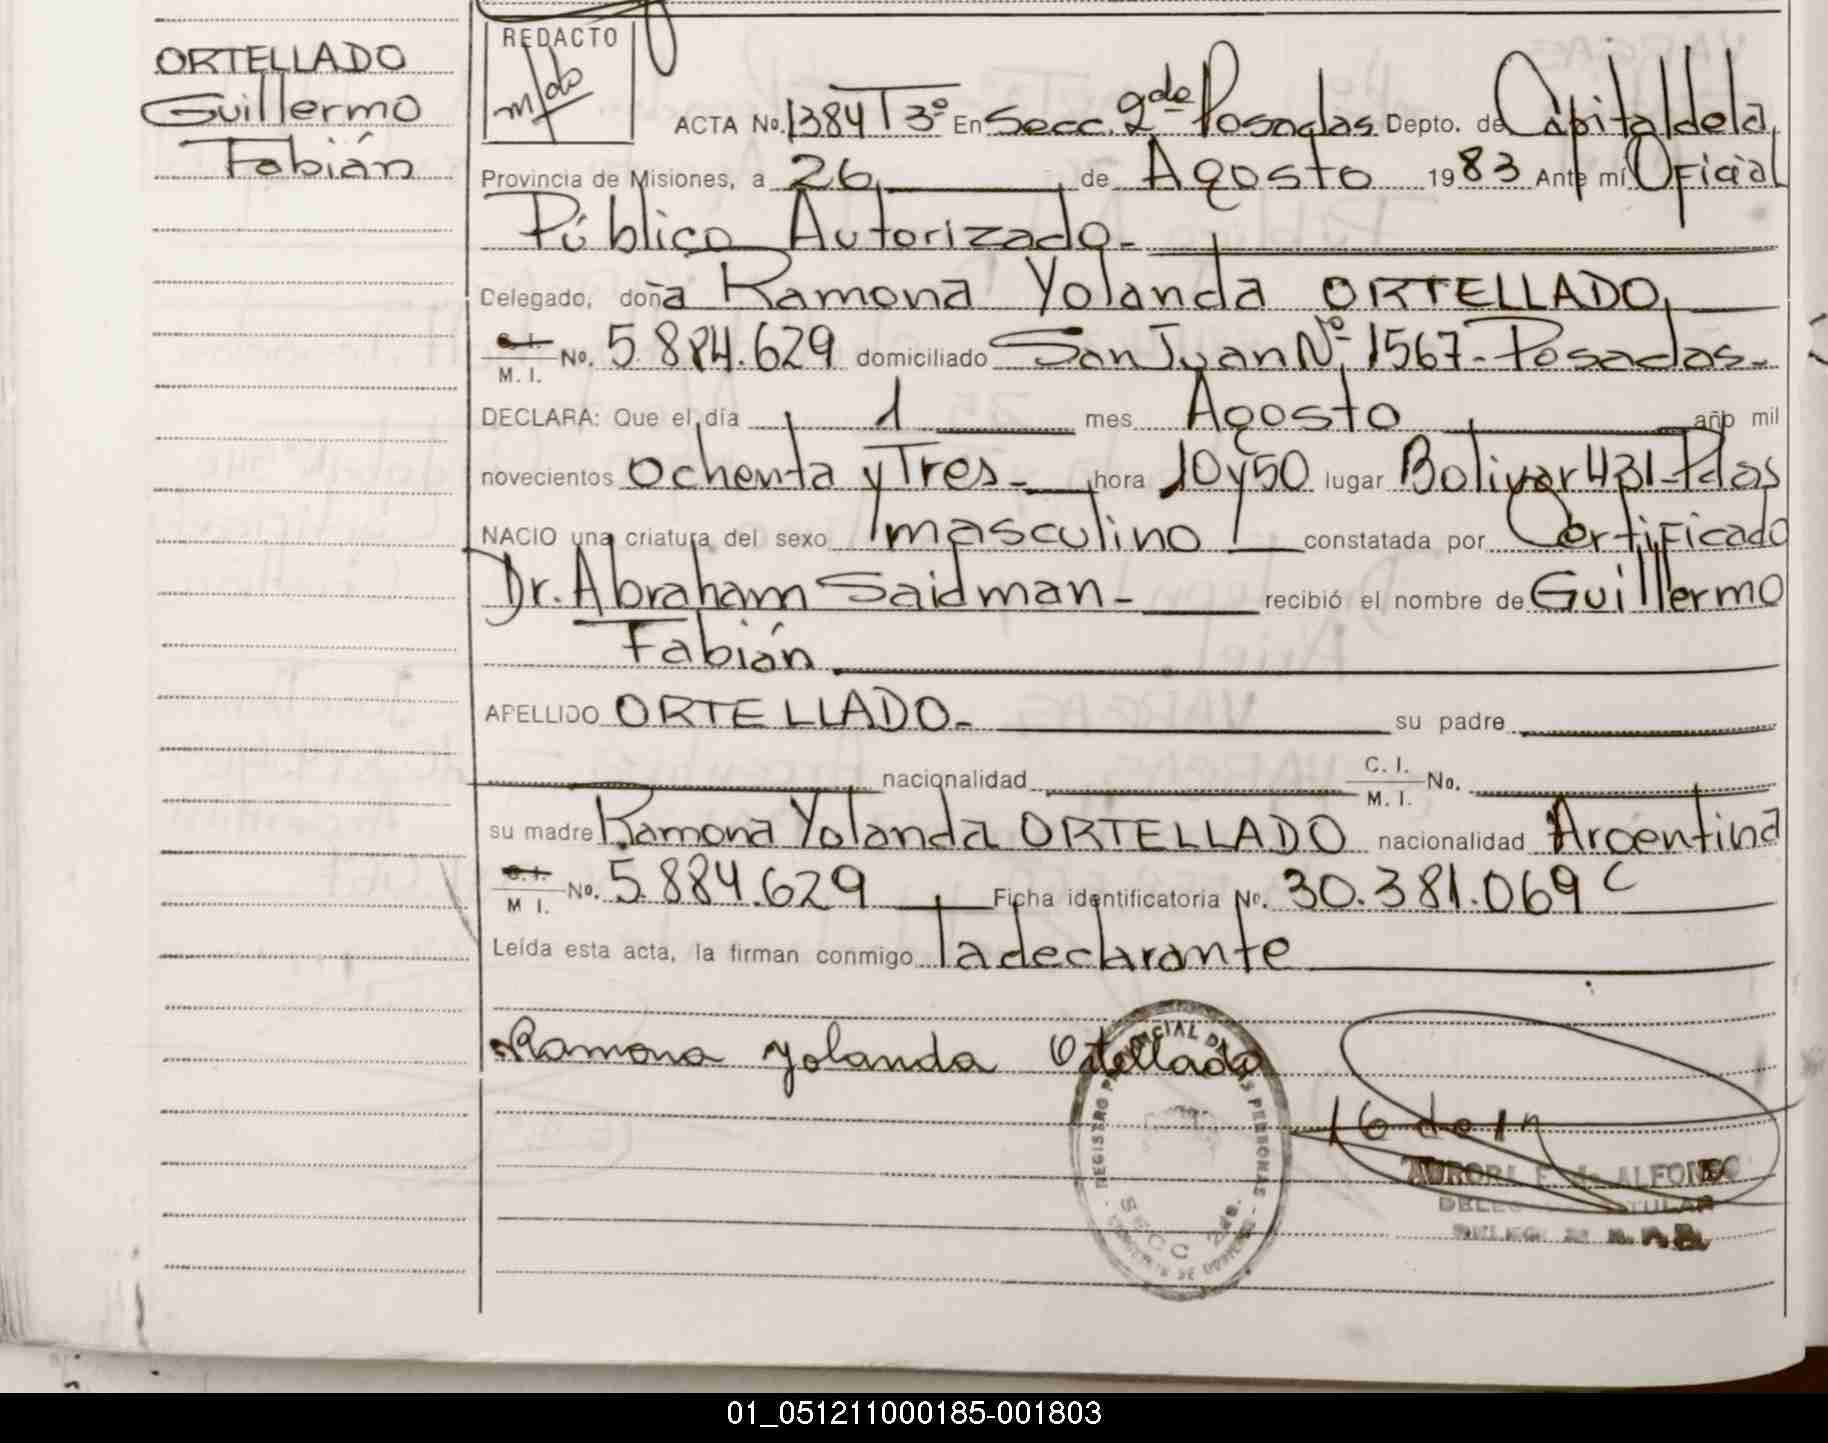 ORTELLADO
Guillermo
Fabián
REDACTO
ACTA No. 1384 T 3º En Secc. 2da Posadas Depto. de Capital de la
Provincia de Misiones, a 26 de Agosto 1983 Ante mí Oficial
Público Autorizado-
Delegado, doña Ramona Yolanda ORTELLADO,
C.I.
M. I. No. 5.884.629 domiciliado San Juan Nº 1567-Posadas-
DECLARA: Que el día 1 mes Agosto año mil
novecientos ochenta y Tres- hora 10 y 50 lugar Bolivar 431-Pdas
NACIO una criatura del sexo masculino constatada por Certificado
Dr. Abraham Saidman- recibió el nombre de Guillermo
Fabián
APELLIDO ORTELLADO- su padre
nacionalidad C. I.
M. I. No.
su madre Ramona Yolanda ORTELLADO nacionalidad Argentina
C.I.
M I. No. 5.884.629 Ficha identificatoria No. 30.381.069 C
Leída esta acta, la firman conmigo la declarante
Ramona Yolanda Ortellado
REGISTRO PROVINCIAL DE LAS PERSONAS
SECC 2da.
AURORA E. de ALFONSO
TITULAR
01_051211000185-001803